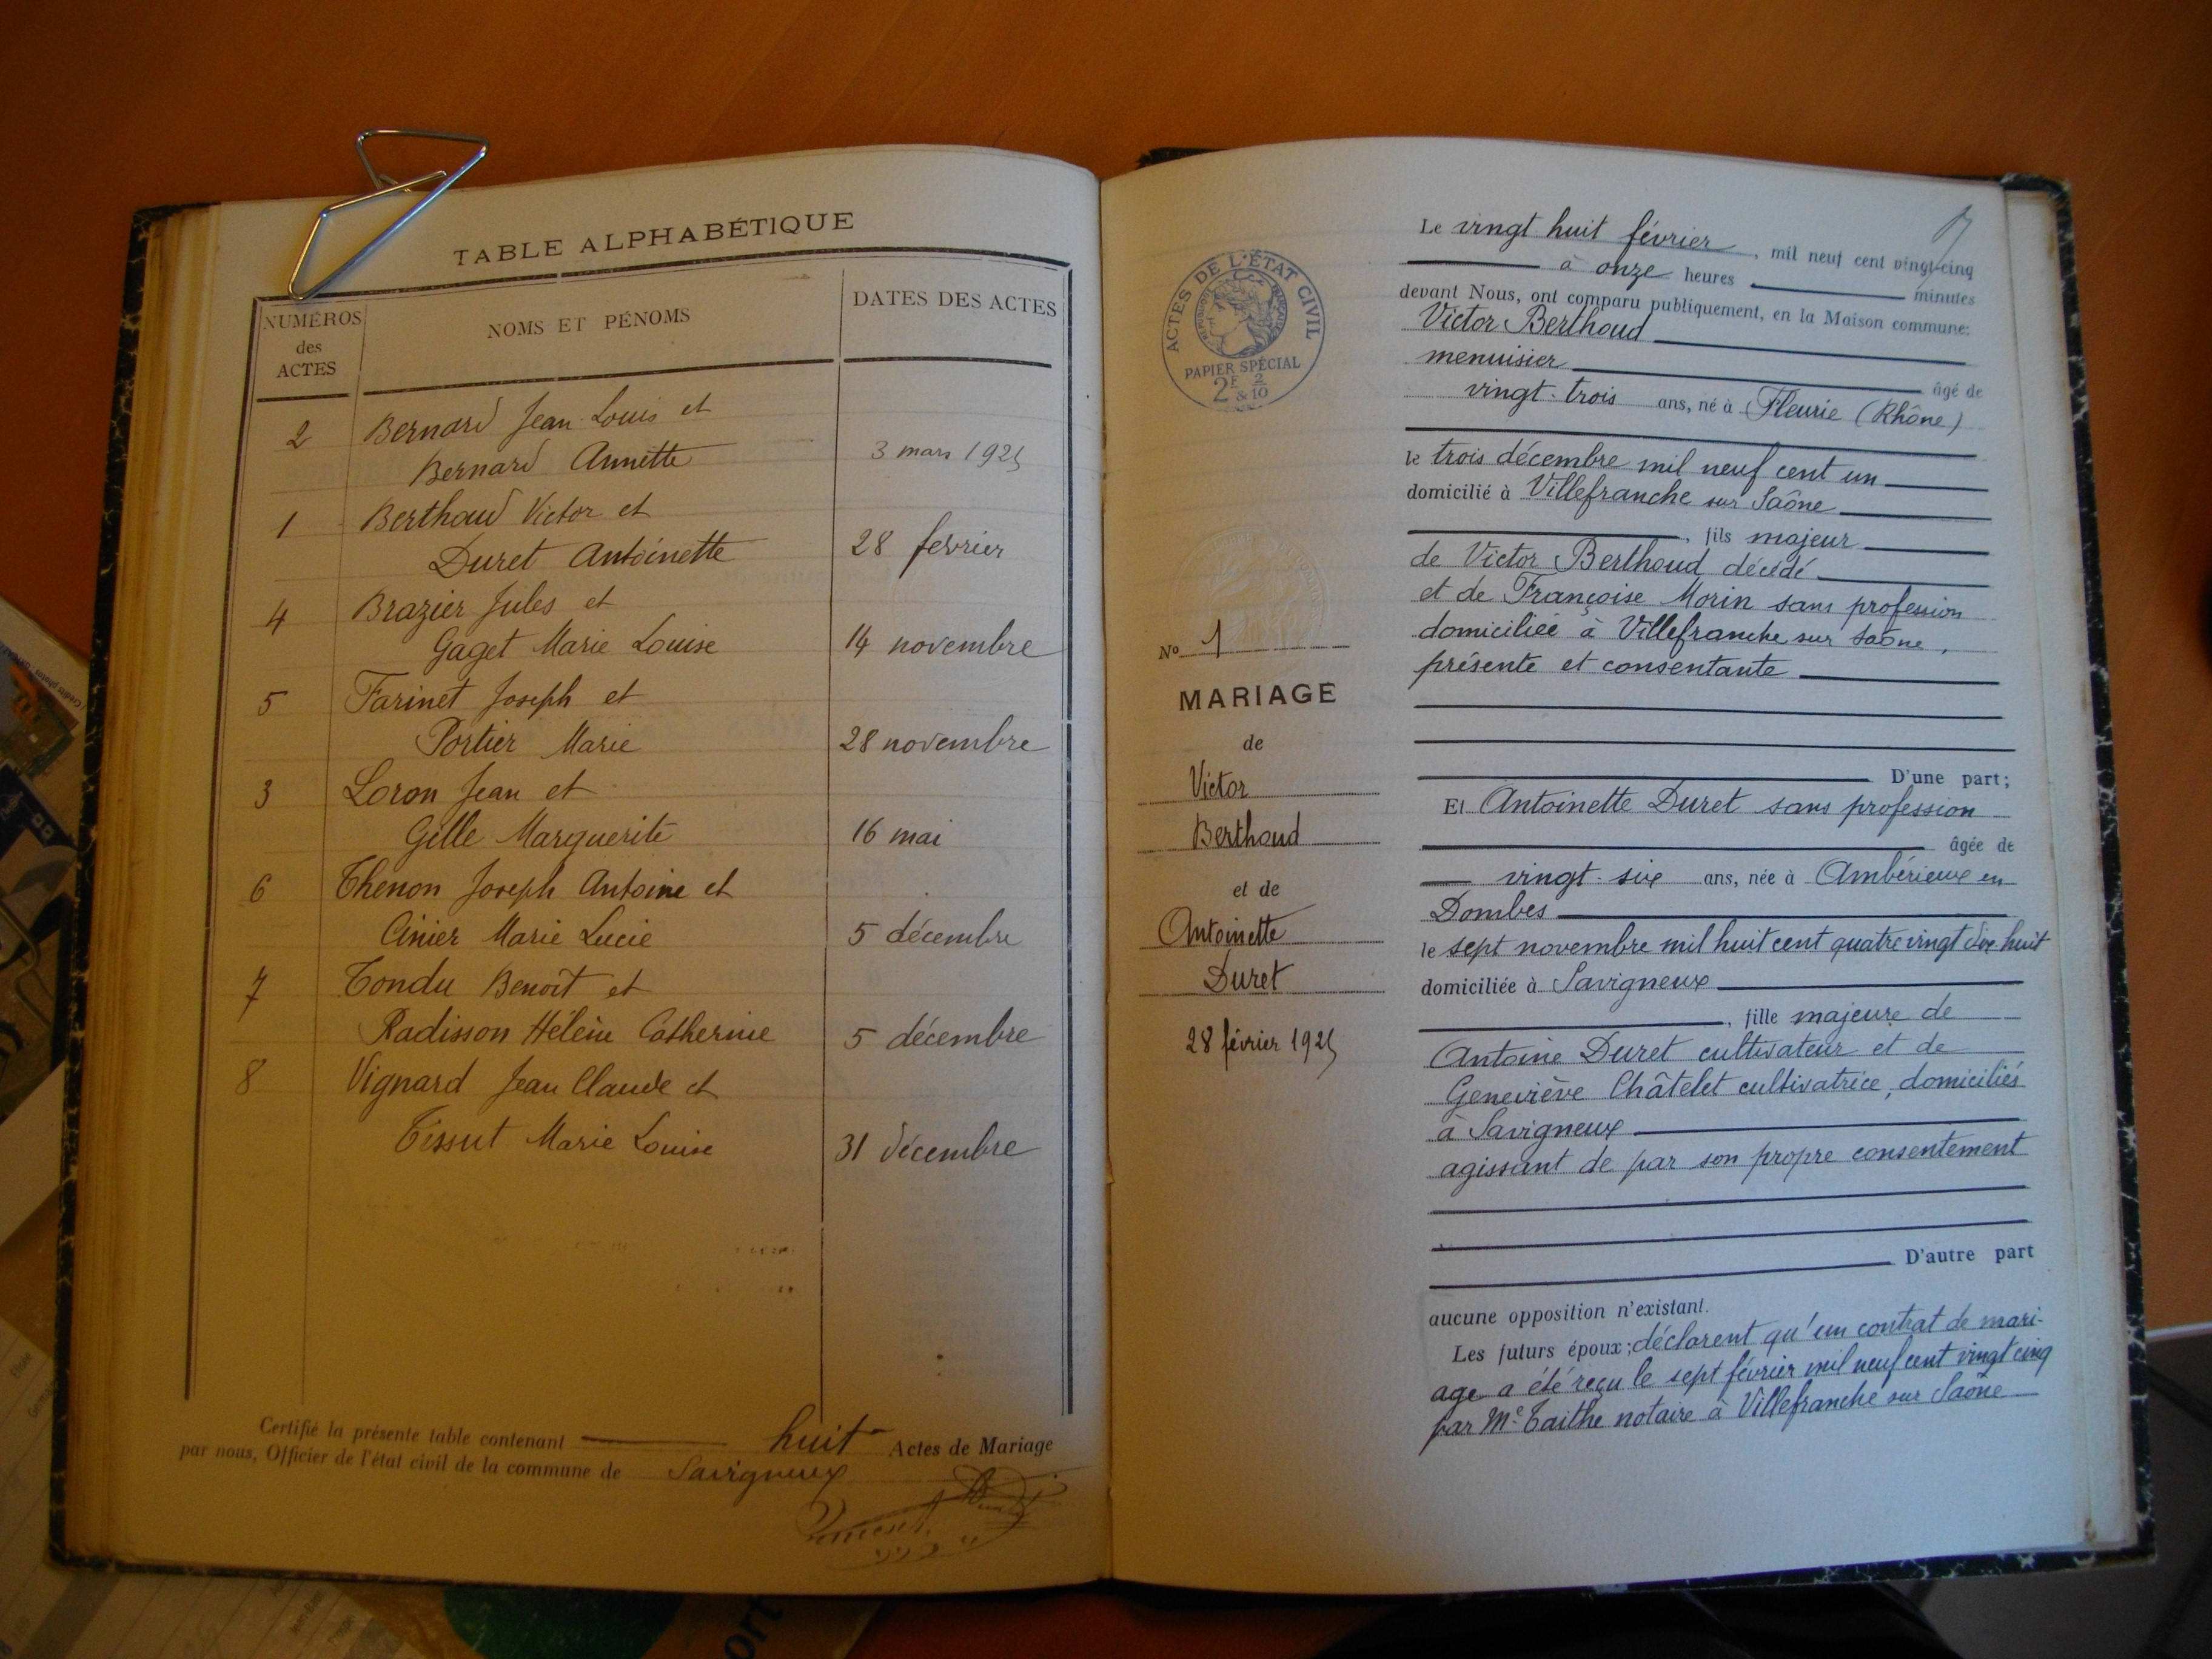 TABLE ALPHABÉTIQUE
NUMÉROS
des
ACTES
NOMS ET PÉNOMS
DATES DES ACTES
2 Bernard Jean-Louis et
Bernard Annette 3 mars 1925
1 Berthoud Victor et
Duret Antoinette 28 fevrier
4 Brazier Jules et
Gaget Marie Louise 14 novembre
5 Farinet Joseph et
Portier Marie 28 novembre
3 Loron Jean et
Gelle Marguerite 16 mai
6 Thenon Joseph Antoine et
Cinier Marie Lucie 5 décembre
7 Tondu Benoît et
Radisson Hélène Catherine 5 décembre
8 Vignard Jean Claude et
Tissut Marie Louise 31 décembre
Certifié la présente table contenant huit Actes de Mariage
par nous, Officier de l'état civil de la commune de Savigneux
ACTES DE L'ÉTAT CIVIL
RÉPUBLIQUE FRANÇAISE
PAPIER SPÉCIAL
2F & 2/10
No 1
MARIAGE
de
Victor
Berthoud
et de
Antoinette
Duret
28 février 1925
Le vingt huit février, mil neuf cent vingt-cinq
à onze heures minutes
devant Nous, ont comparu publiquement, en la Maison commune:
Victor Berthoud
menuisier âgé de
vingt-trois ans, né à Fleurie (Rhône)
le trois décembre mil neuf cent un
domicilié à Villefranche sur Saône
, fils majeur
de Victor Berthoud décédé
et de Françoise Morin sans profession
domiciliée à Villefranche sur Saône,
présente et consentante
D'une part;
Et Antoinette Duret sans profession
âgée de
vingt-six ans, née à Ambérieux en
Dombes
le sept novembre mil huit cent quatre vingt dix huit
domiciliée à Savigneux
, fille majeure de
Antoine Duret cultivateur et de
Geneviève Châtelet cultivatrice, domiciliés
à Savigneux
agissant de par son propre consentement
D'autre part
aucune opposition n'existant.
Les futurs époux; déclarent qu'un contrat de mari-
age a été reçu le sept février mil neuf cent vingt cinq
par Me Taithe notaire à Villefranche sur Saône